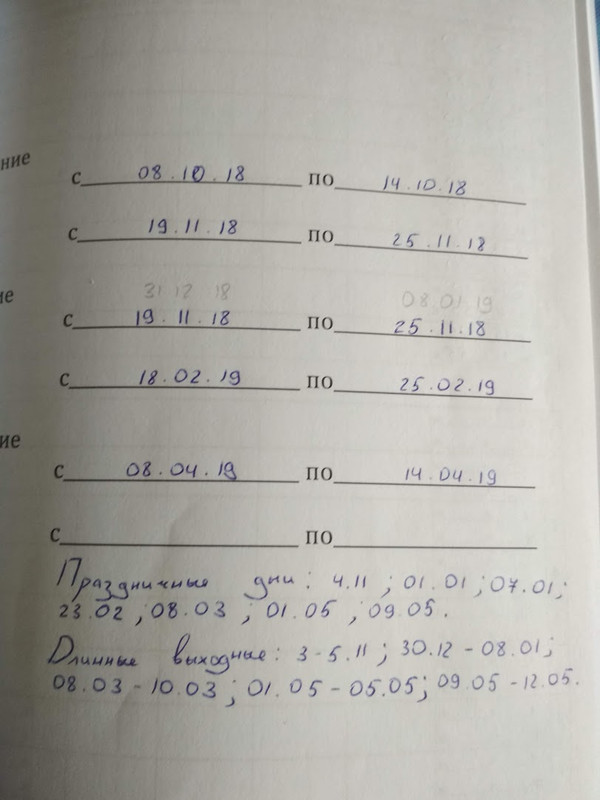 ние
с 08.10.18 по 14.10.18
с 19.11.18 по 25.11.18
ие
31 12 18 08.01.19
с 19.11.18 по 25.11.18
с 18.02.19 по 25.02.19
ие
с 08.04.19 по 14.04.19
с по
Праздничные дни: 4.11 ; 01.01 ; 07.01;
23.02 ; 08.03 ; 01.05 , 09.05.
Длинные выходные: 3-5.11 ; 30.12 - 08.01;
08.03 - 10.03 ; 01.05 - 05.05; 09.05 - 12.05.